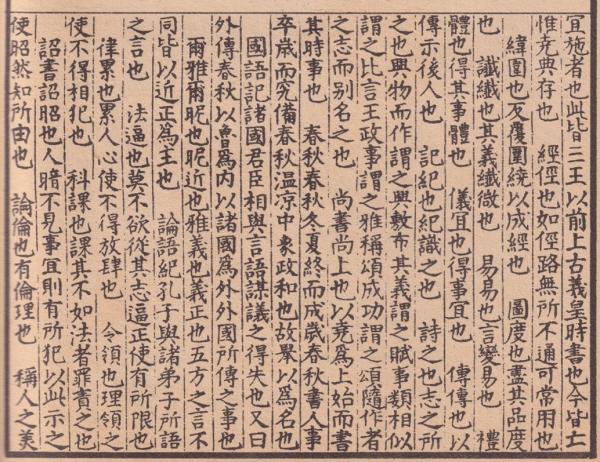 宜施者也此皆三王以前上古羲皇時書也今皆亡
惟堯典存也　經俓也如俓路無所不通可常用也
緯圍也反覆圍繞以成經也　圖度也盡其品度
也　讖纖也其義纖微也　易易也言變易也　禮
體也得其事體也　儀宜也得事宜也　傳傳也以
傳示後人也　記紀也紀識之也　詩之也志之所
之也興物而作謂之興敷布其義謂之賦事類相似
謂之比言王政事謂之雅稱頌成功謂之頌隨作者
之志而别名之也　尚書尚上也以堯爲上始而書
其時事也　春秋春秋冬夏終而成歲春秋書人事
卒歲而究備春秋温涼中象政和也故舉以爲名也
國語記諸國君臣相與言語謀議之得失也又曰
外傳春秋以魯爲内以諸國爲外外國所傳之事也
爾雅爾昵也昵近也雅義也義正也五方之言不
同皆以近正爲主也　論語紀孔子與諸弟子所語
之言也　法逼也莫不欲從其志逼正使有所限也
律累也累人心使不得放肆也　令領也理領之
使不得相犯也　科課也課其不如法者罪責之也
詔書詔昭也人暗不見事宜則有所犯以此示之
使昭然知所由也　論倫也有倫理也　稱人之美